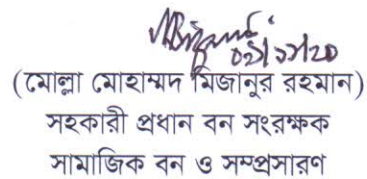 ০৯/১১/২০
(মোল্লা মোহাম্মদ মিজানুর রহমান)
সহকারী প্রধান বন সংরক্ষক
সামাজিক বন ও সম্প্রসারণ